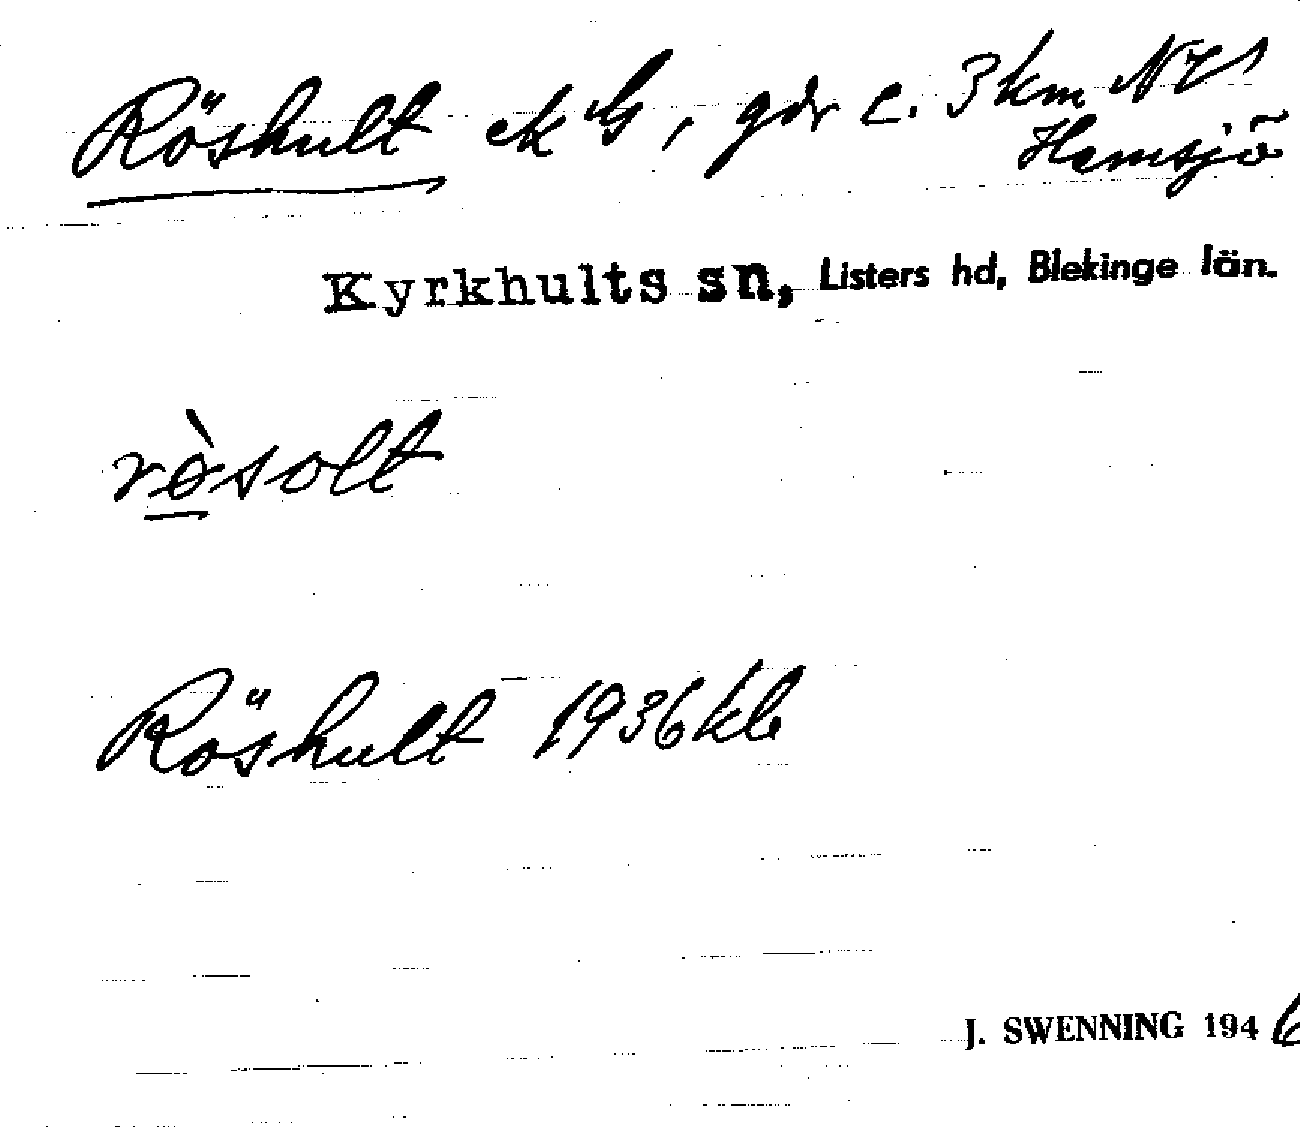 Röshult ek ¼, gdr c. 3 km NV
Hemsjö
Kyrkhults sn, Listers hd, Blekinge län.
rö̀solt
Röshult 1936 kb
J. SWENNING 1946